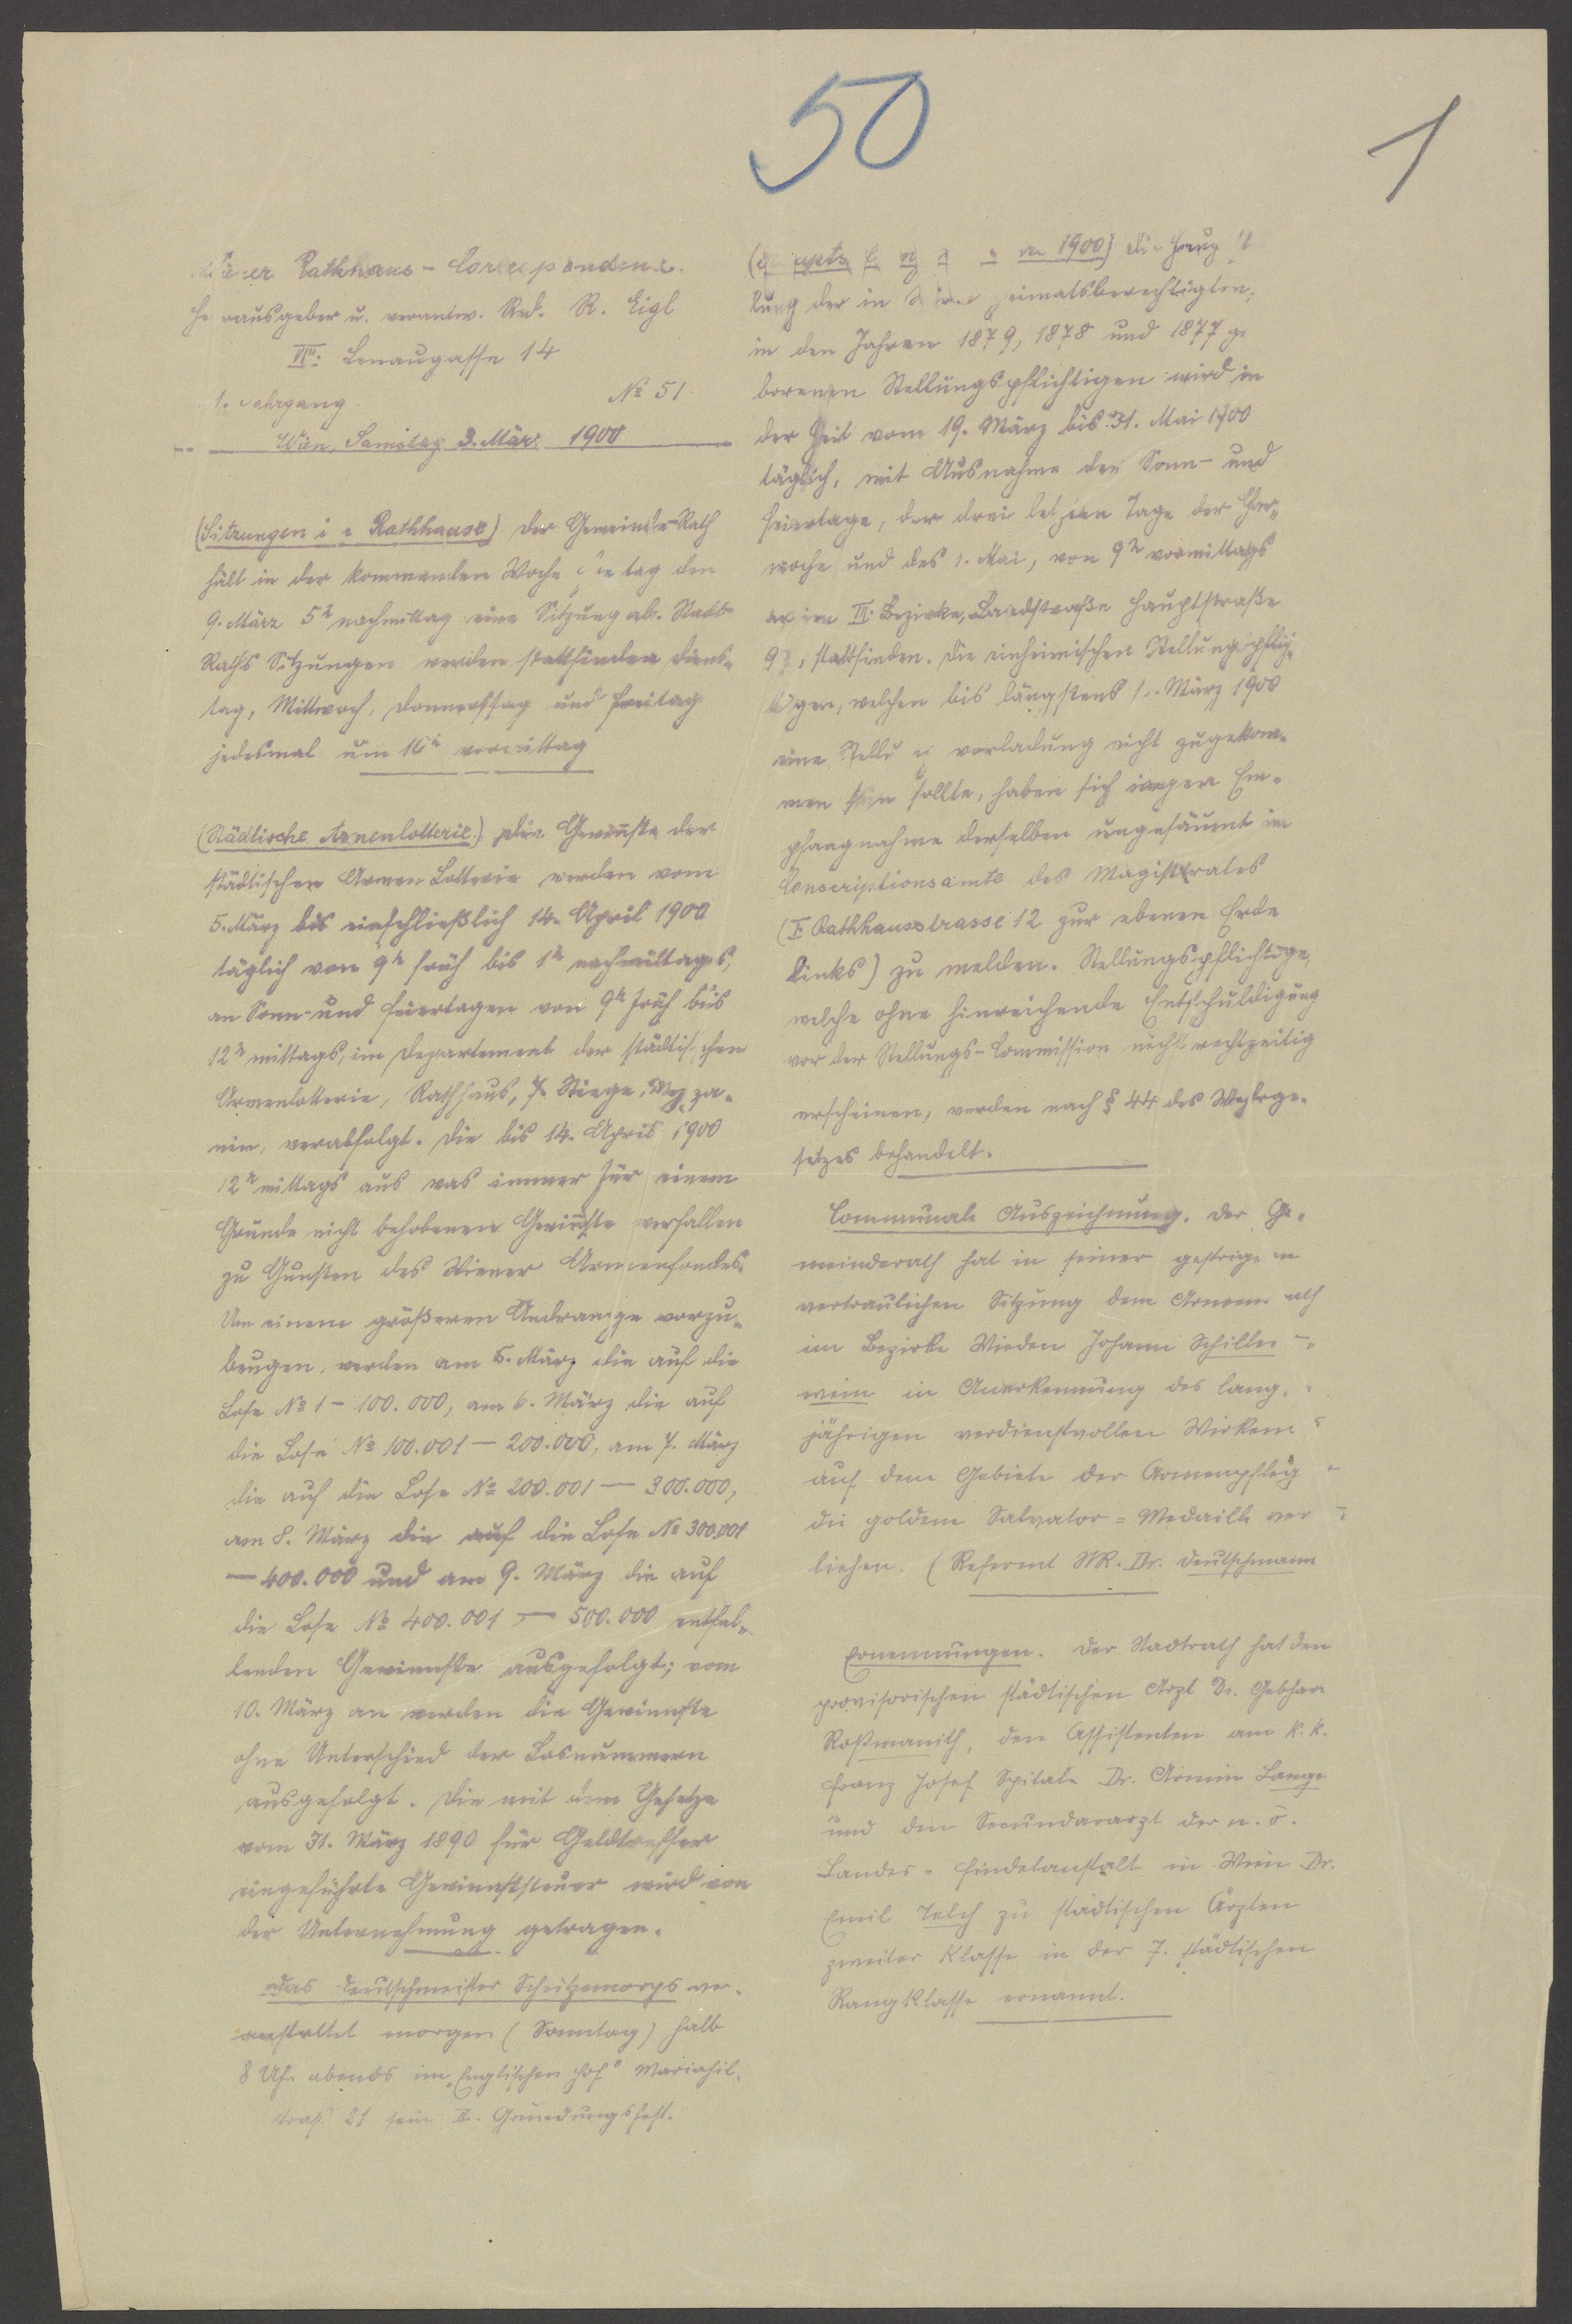 50
1
Wiener Rathhaus-Correspondenz.
Herausgeber u. verantw. Red. R. Eigl
Lenaugasse 14
1. Jahrgang. No 51
Wien, Samstag 3. März 1900
(Sitzungen im Rathhause) Der Gemeinde-Rath
hält in der kommenden Woche Freitag den
9. März 5h nachmittag eine Sitzung ab. Stadt-
Raths Sitzungen werden stattfinden Diens-
tag, Mittwoch, Donnerstag und Freitag
jedesmal um 10h vormittag
(Städtische Armenlotterie.) Die Gewinnste der
städtischen Armen Lotterie werden vom
5. März bis einschließlich 14. April 1900
täglich von 9h früh bis 1h nachmittags,
an Sonn- und Feiertagen von 9h früh bis
12h mittags, im Departement der städtischen
Armenlotterie, Rathhaus, 7. Stiege, Mezza-
nin, verabfolgt. Die bis 14. April 1900
12h mittags aus was immer für einem
Grunde nicht behobenen Gewinnste verfallen
zu Gunsten des Wiener Armenfondes.
Um einem größeren Andrange vorzu-
beugen, werden am 5. März die auf die
Lose No 1 - 100.000, am 6. März die auf
die Lose No 100.001 - 200.000, am 7. März
die auf die Lose No 200.001 - 300.000,
am 8. März die auf die Lose No 300.001
- 400.000 und am 9. März die auf
die Lose No 400.001 - 500.000 entfal-
lenden Gewinnste ausgefolgt; vom
10. März an werden die Gewinnste
ohne Unterschied der Losnummern
ausgefolgt. Die mit dem Gesetze
vom 31. März 1890 für Geldtreffer
eingeführte Gewinnststeuer wird von
der Unternehmung getragen.
Das Deutschmeister Schützencorps ver-
anstaltet morgen (Sonntag) halb
8 Uhr abends im "Englischen Hof" Mariahil-
straß 81 sein II. Gründungsfest.
1900) Die Hauptstel
lung der in Wien heimatsberechtigten,
in den Jahren 1879, 1878 und 1877 ge
borenen Stellungspflichtigen wird in
der Zeit vom 19. März bis 31. Mai 1900
täglich, mit Ausnahme der Sonn- und
Feiertage, der drei letzten Tage der Char-
woche und des 1. Mai, von 9h vormittags
an im III. Bezirke, Landstraße Hauptstraße
stattfinden. Die einheimischen Stellungspflich-
tigen, welchen bis längstens März 1900
eine Stellungsvorladung nicht zugekom-
men sein sollte, haben sich wegen Em-
pfangnahme derselben ungesäumt im
Conscriptionsamte des Magistrates
(I. Rathhausstrasse 12 zur ebenen Erde
links) zu melden. Stellungspflichtige,
welche ohne hinreichende Entschuldigung
vor der Stellungs-Commission nicht rechtzeitig
erscheinen, werden nach § 44 des Wehrge-
setzes behandelt.
Communale Auszeichnung. Der Ge-
meinderath hat in seiner gestrigen
vertraulichen Sitzung dem Armenrath
im Bezirke Wieden Johann Schiller-
wein in Anerkennung des lang-
jährigen verdienstvollen Wirkens
auf dem Gebiete der Armenpflege
die goldene Salvator-Medaille ver-
liehen. (Referent StR. Dr. Deutschmann
Ernennungen. Der Stadtrath hat den
provisorischen städtischen Arzt Dr. Gebhar
Roßmanith, den Assistenten am k.k.
Franz Josef Spitale Dr. Armin Lange
und den Secundararzt der n.ö.
Landes-Findelanstalt in Wien Dr.
Emil Telch zu städtischen Ärzten
zweiter Klasse in der 7. städtischen
Rangklasse ernannt.